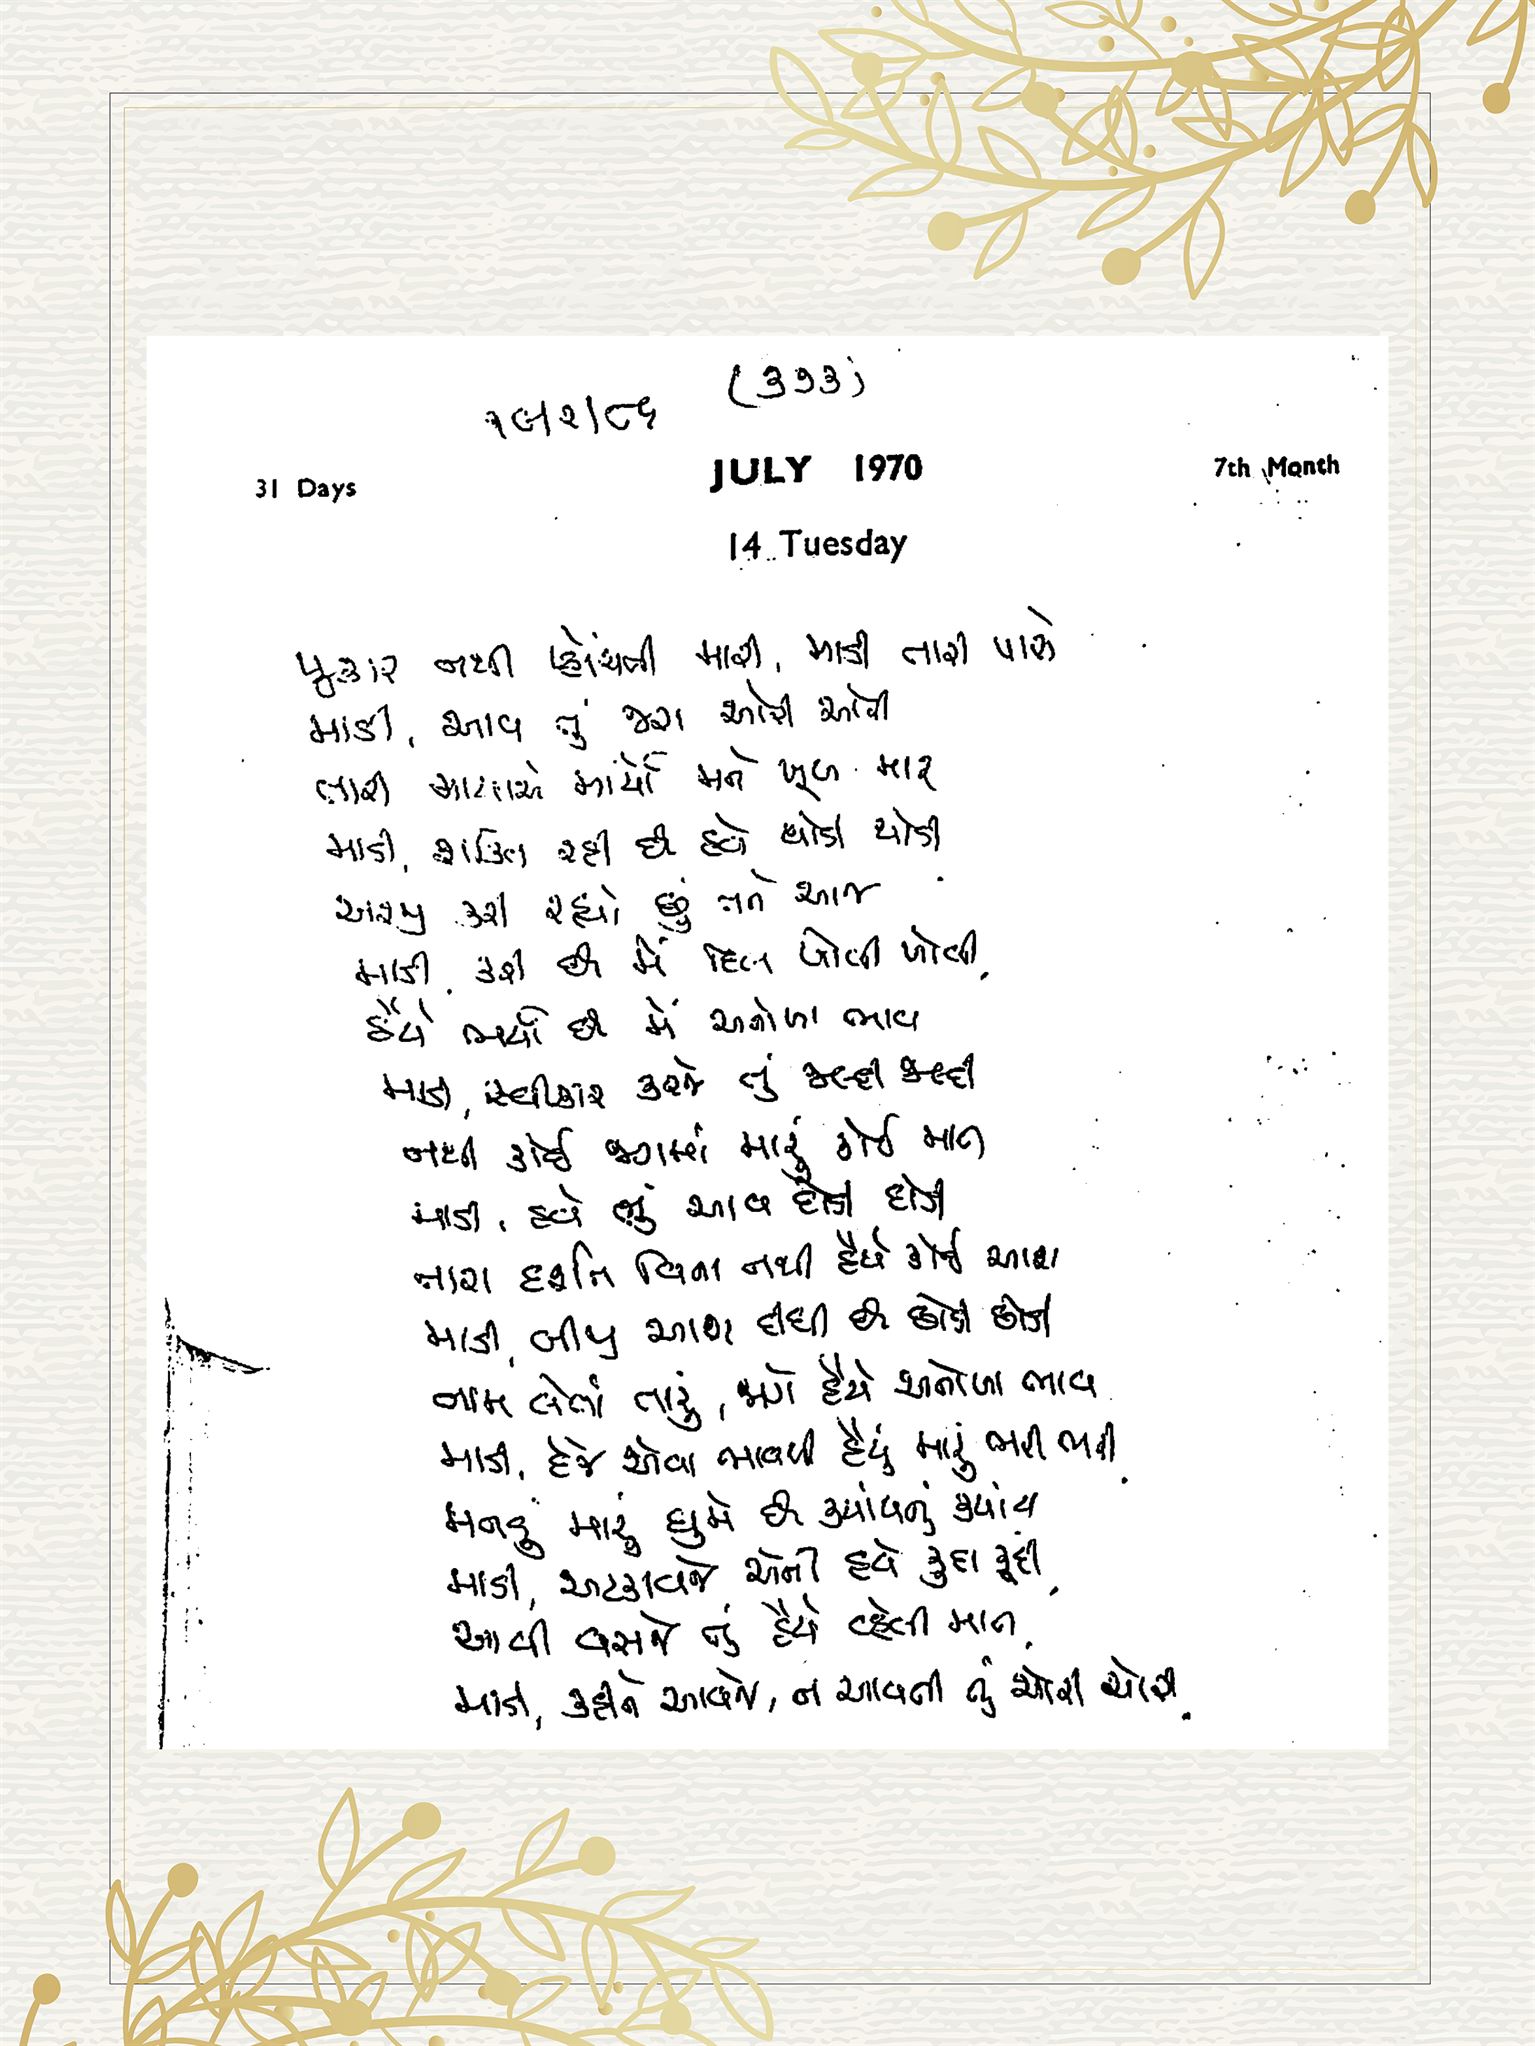 (૩૭૩)
૧૯/૨/૮૬
31 Days JULY 1970 7th Month
14 Tuesday
પુકાર નથી પ્હોંચતી મારી, માડી તારી પાસે
માડી, આવ તું જરા ઓરી ઓરી
તારી માયાએ માર્યો મને ખૂબ માર
માડી, શક્તિ રહી છે હવે થોડી થોડી
અરપુ કરી રહ્યો છું તને આજ
માડી, કરી છે મેં દિલ ખોલી ખોલી.
હૈયે ભર્યો છે મેં અનોખા ભાવ
માડી, સ્વીકાર કરજે તું જલ્દી જલ્દી
નથી કોઈ જગમાં મારું કોઈ માત
માડી, હવે તું આવ દોડી દોડી
તારા દર્શન વિના નથી હૈયે કોઈ આશ
માડી, બીજી આશ દીધી છે છોડી છોડી
નામ લેતાં તારું, જાગે હૈયે અનોખા ભાવ
માડી, દેજે એવા ભાવથી હૈયું મારું ભરી ભરી.
મનડું મારું ઘુમે છે ક્યાંયનું ક્યાંય
માડી, અટકાવજે એની હવે કુદા કૂદી.
આવી વસજે તું હૈયે વ્હેલી માત.
માડી, કહીને આવજે, ન આવતી તું ચોરી ચોરી.